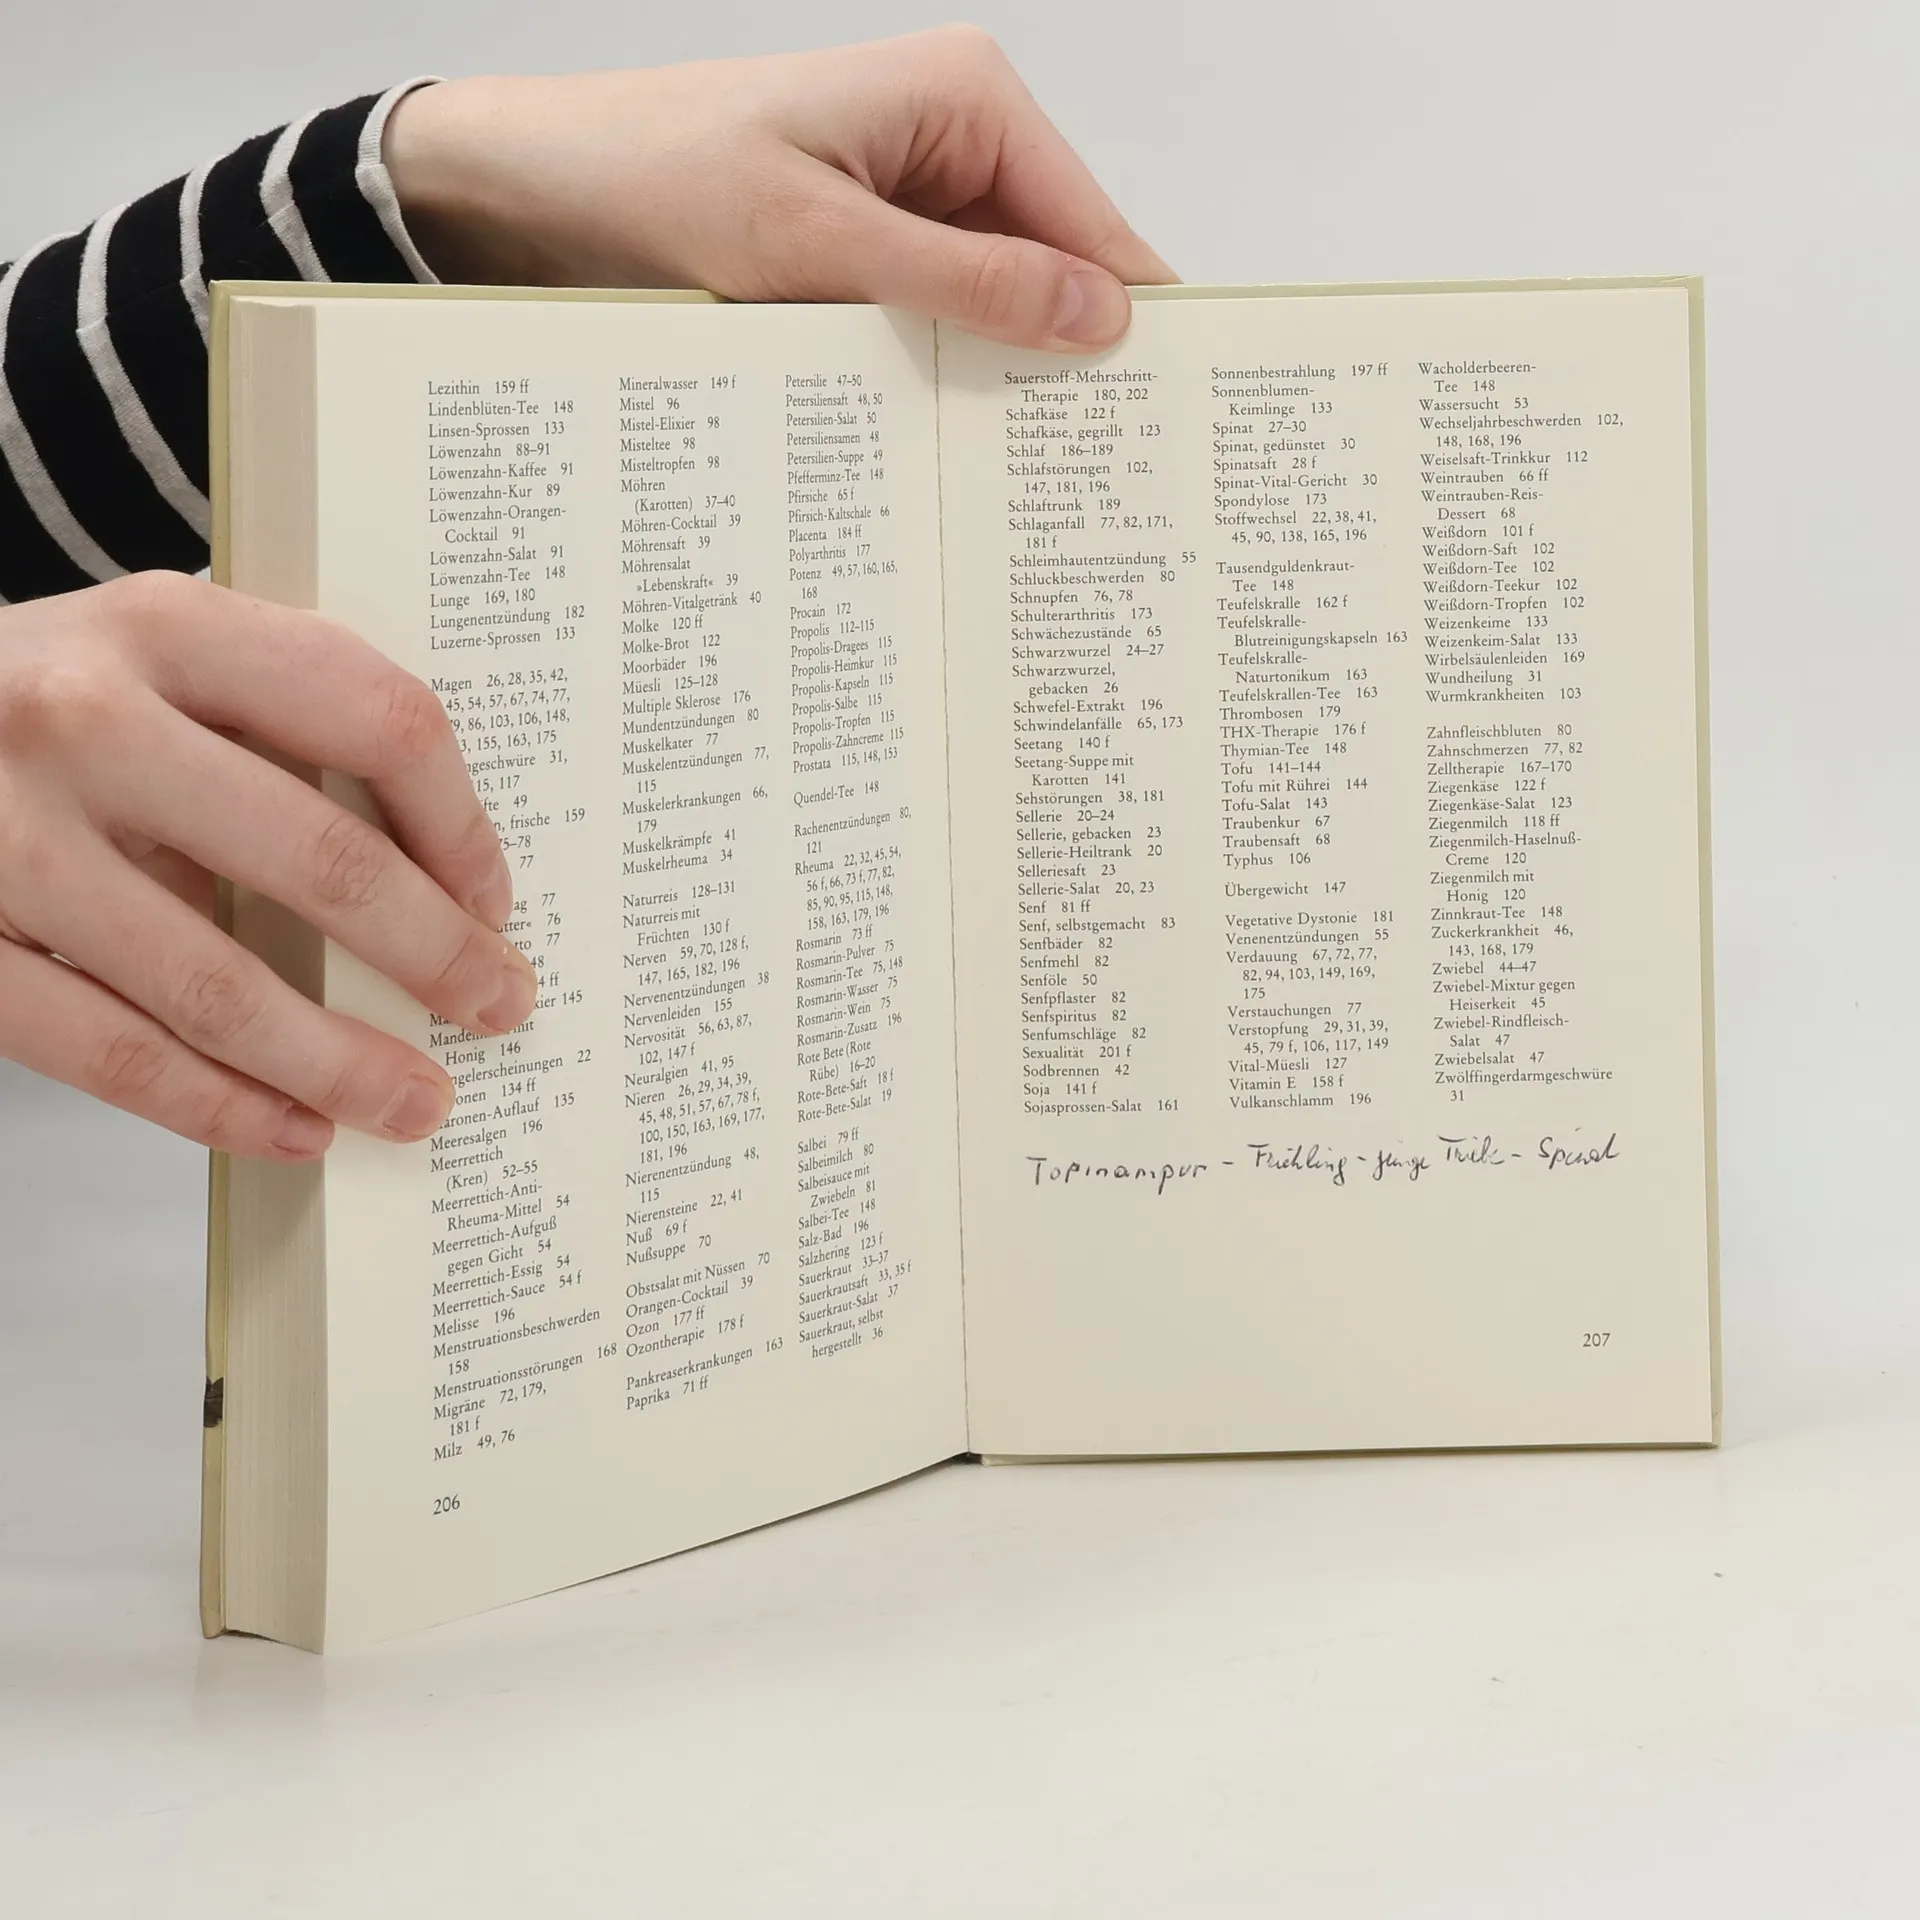 Lezithin 159 ff
Lindenblüten-Tee 148
Linsen-Sprossen 133
Löwenzahn 88–91
Löwenzahn-Kaffee 91
Löwenzahn-Kur 89
Löwenzahn-Orangen-
Cocktail 91
Löwenzahn-Salat 91
Löwenzahn-Tee 148
Lunge 169, 180
Lungenentzündung 182
Luzerne-Sprossen 133
Magen 26, 28, 35, 42,
45, 54, 57, 67, 74, 77,
86, 103, 106, 148,
155, 163, 175
31,
117
49
frische 159
77
77
76
77
145
Honig 146
22
134 ff
135
Meeresalgen 196
Meerrettich
(Kren) 52–55
Meerrettich-Anti-
Rheuma-Mittel 54
Meerrettich-Aufguß
gegen Gicht 54
Meerrettich-Essig 54
Meerrettich-Sauce 54 f
Melisse 196
Menstruationsbeschwerden
158
Menstruationsstörungen 168
Migräne 72, 179,
181 f
Milz 49, 76
Mineralwasser 149 f
Mistel 96
Mistel-Elixier 98
Misteltee 98
Misteltropfen 98
Möhren
(Karotten) 37–40
Möhren-Cocktail 39
Möhrensaft 39
Möhrensalat
»Lebenskraft« 39
Möhren-Vitalgetränk 40
Molke 120 ff
Molke-Brot 122
Moorbäder 196
Müesli 125–128
Multiple Sklerose 176
Mundentzündungen 80
Muskelkater 77
Muskelentzündungen 77,
115
Muskelerkrankungen 66,
179
Muskelkrämpfe 41
Muskelrheuma 34
Naturreis 128–131
Naturreis mit
Früchten 130 f
Nerven 59, 70, 128 f,
147, 165, 182, 196
Nervenentzündungen 38
Nervenleiden 155
Nervosität 56, 63, 87,
102, 147 f
Neuralgien 41, 95
Nieren 26, 29, 34, 39,
45, 48, 51, 57, 67, 78 f,
100, 150, 163, 169, 177,
181, 196
Nierenentzündung 48,
115
Nierensteine 22, 41
Nuß 69 f
Nußsuppe 70
Obstsalat mit Nüssen 70
Orangen-Cocktail 39
Ozon 177 ff
Ozontherapie 178 f
Pankreaserkrankungen 163
Paprika 71 ff
Petersilie 47–50
Petersiliensaft 48, 50
Petersilien-Salat 50
Petersiliensamen 48
Petersilien-Suppe 49
Pfefferminz-Tee 148
Pfirsiche 65 f
Pfirsich-Kaltschale 66
Placenta 184 ff
Polyarthritis 177
Potenz 49, 57, 160, 165,
168
Procain 172
Propolis 112–115
Propolis-Dragees 115
Propolis-Heimkur 115
Propolis-Kapseln 115
Propolis-Salbe 115
Propolis-Tropfen 115
Propolis-Zahncreme 115
Prostata 115, 148, 153
Quendel-Tee 148
Rachenentzündungen 80,
121
Rheuma 22, 32, 45, 54,
56 f, 66, 73 f, 77, 82,
85, 90, 95, 115, 148,
158, 163, 179, 196
Rosmarin 73 ff
Rosmarin-Pulver 75
Rosmarin-Tee 75, 148
Rosmarin-Wasser 75
Rosmarin-Wein 75
Rosmarin-Zusatz 196
Rote Bete (Rote
Rübe) 16–20
Rote-Bete-Saft 18 f
Rote-Bete-Salat 19
Salbei 79 ff
Salbeimilch 80
Salbeisauce mit
Zwiebeln 81
Salbei-Tee 148
Salz-Bad 196
Salzhering 123 f
Sauerkraut 33–37
Sauerkrautsaft 33, 35 f
Sauerkraut-Salat 37
Sauerkraut, selbst
hergestellt 36
206
Sauerstoff-Mehrschritt-
Therapie 180, 202
Schafkäse 122 f
Schafkäse, gegrillt 123
Schlaf 186–189
Schlafstörungen 102,
147, 181, 196
Schlaftrunk 189
Schlaganfall 77, 82, 171,
181 f
Schleimhautentzündung 55
Schluckbeschwerden 80
Schnupfen 76, 78
Schulterarthritis 173
Schwächezustände 65
Schwarzwurzel 24–27
Schwarzwurzel,
gebacken 26
Schwefel-Extrakt 196
Schwindelanfälle 65, 173
Seetang 140 f
Seetang-Suppe mit
Karotten 141
Sehstörungen 38, 181
Sellerie 20–24
Sellerie, gebacken 23
Sellerie-Heiltrank 20
Selleriesaft 23
Sellerie-Salat 20, 23
Senf 81 ff
Senf, selbstgemacht 83
Senfbäder 82
Senfmehl 82
Senföle 50
Senfpflaster 82
Senfspiritus 82
Senfumschläge 82
Sexualität 201 f
Sodbrennen 42
Soja 141 f
Sojasprossen-Salat 161
Sonnenbestrahlung 197 ff
Sonnenblumen-
Keimlinge 133
Spinat 27–30
Spinat, gedünstet 30
Spinatsaft 28 f
Spinat-Vital-Gericht 30
Spondylose 173
Stoffwechsel 22, 38, 41,
45, 90, 138, 165, 196
Tausendguldenkraut-
Tee 148
Teufelskralle 162 f
Teufelskralle-
Blutreinigungskapseln 163
Teufelskralle-
Naturtonikum 163
Teufelskrallen-Tee 163
Thrombosen 179
THX-Therapie 176 f
Thymian-Tee 148
Tofu 141–144
Tofu mit Rührei 144
Tofu-Salat 143
Traubenkur 67
Traubensaft 68
Typhus 106
Übergewicht 147
Vegetative Dystonie 181
Venenentzündungen 55
Verdauung 67, 72, 77,
82, 94, 103, 149, 169,
175
Verstauchungen 77
Verstopfung 29, 31, 39,
45, 79 f, 106, 117, 149
Vital-Müesli 127
Vitamin E 158 f
Vulkanschlamm 196
Wacholderbeeren-
Tee 148
Wassersucht 53
Wechseljahrbeschwerden 102,
148, 168, 196
Weiselsaft-Trinkkur 112
Weintrauben 66 ff
Weintrauben-Reis-
Dessert 68
Weißdorn 101 f
Weißdorn-Saft 102
Weißdorn-Tee 102
Weißdorn-Teekur 102
Weißdorn-Tropfen 102
Weizenkeime 133
Weizenkeim-Salat 133
Wirbelsäulenleiden 169
Wundheilung 31
Wurmkrankheiten 103
Zahnfleischbluten 80
Zahnschmerzen 77, 82
Zelltherapie 167–170
Ziegenkäse 122 f
Ziegenkäse-Salat 123
Ziegenmilch 118 ff
Ziegenmilch-Haselnuß-
Creme 120
Ziegenmilch mit
Honig 120
Zinnkraut-Tee 148
Zuckerkrankheit 46,
143, 168, 179
Zwiebel 44–47
Zwiebel-Mixtur gegen
Heiserkeit 45
Zwiebel-Rindfleisch-
Salat 47
Zwiebelsalat 47
Zwölffingerdarmgeschwüre
31
Topinampur – Frühling – junge Triebe – Spinat
207